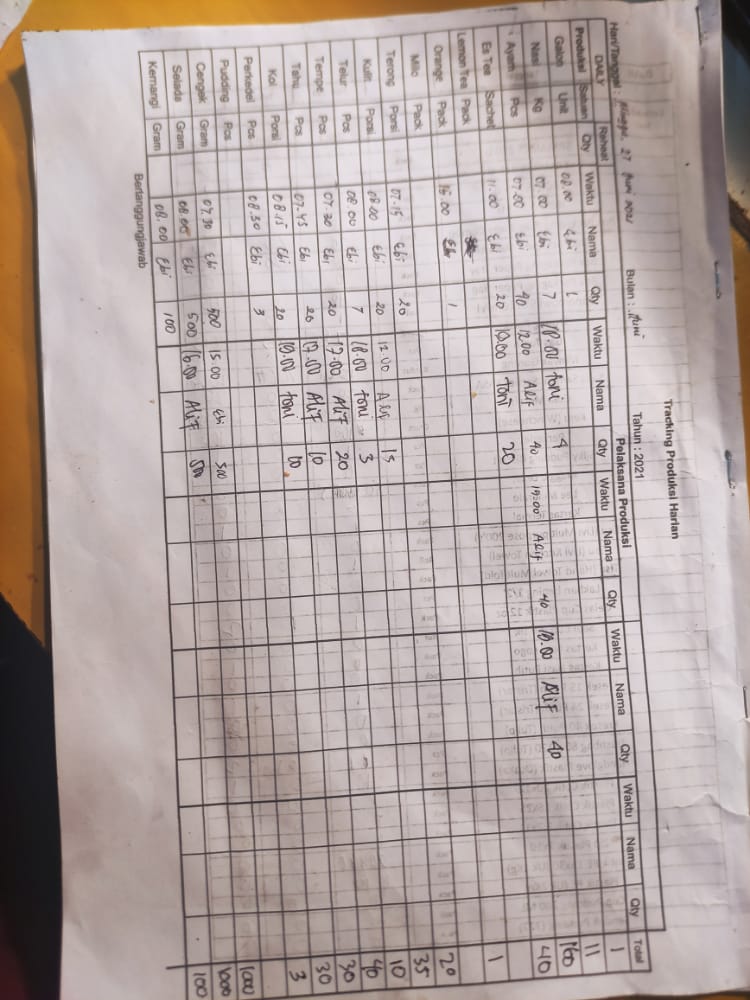 Tracking Produksi Harian
Hari/Tanggal : Minggu, 27 Juni 2021 Bulan : Juni Tahun : 2021
DAILY Reheat Pelaksana Produksi Total
Produksi Satuan Qty Waktu Nama Qty Waktu Nama Qty Waktu Nama Qty Waktu Nama Qty Waktu Nama Qty
Galon Unit 08.00 Ebi 1 1
Nasi Kg 07.00 Ebi 7 18.00 Toni 4 11
Ayam Pcs 07.00 Ebi 40 12.00 Alif 40 15.00 Alif 40 18.00 Alif 40 160
Es Tea Sachet 11.00 Ebi 20 18.00 Toni 20 40
Lemon Tea Pack
Orange Pack 16.00 Ebi 1 1
Milo Pack
Terong Porsi 07.15 Ebi 20 20
Kulit Porsi 08.00 Ebi 20 12.00 Alif 15 35
Telur Pcs 08.00 Ebi 7 18.00 Toni 3 10
Tempe Pcs 07.30 Ebi 20 17.00 Alif 20 40
Tahu Pcs 07.45 Ebi 20 17.00 Alif 10 30
Kol Porsi 08.15 Ebi 20 18.00 Toni 10 30
Perkedel Pcs 08.30 Ebi 3 3
Pudding Pcs
Cengek Gram 07.30 Ebi 500 15.00 Ebi 500 1000
Selada Gram 08.00 Ebi 500 16.00 Alif 500 1000
Kemangi Gram 08.00 Ebi 100 100
Bertanggungjawab